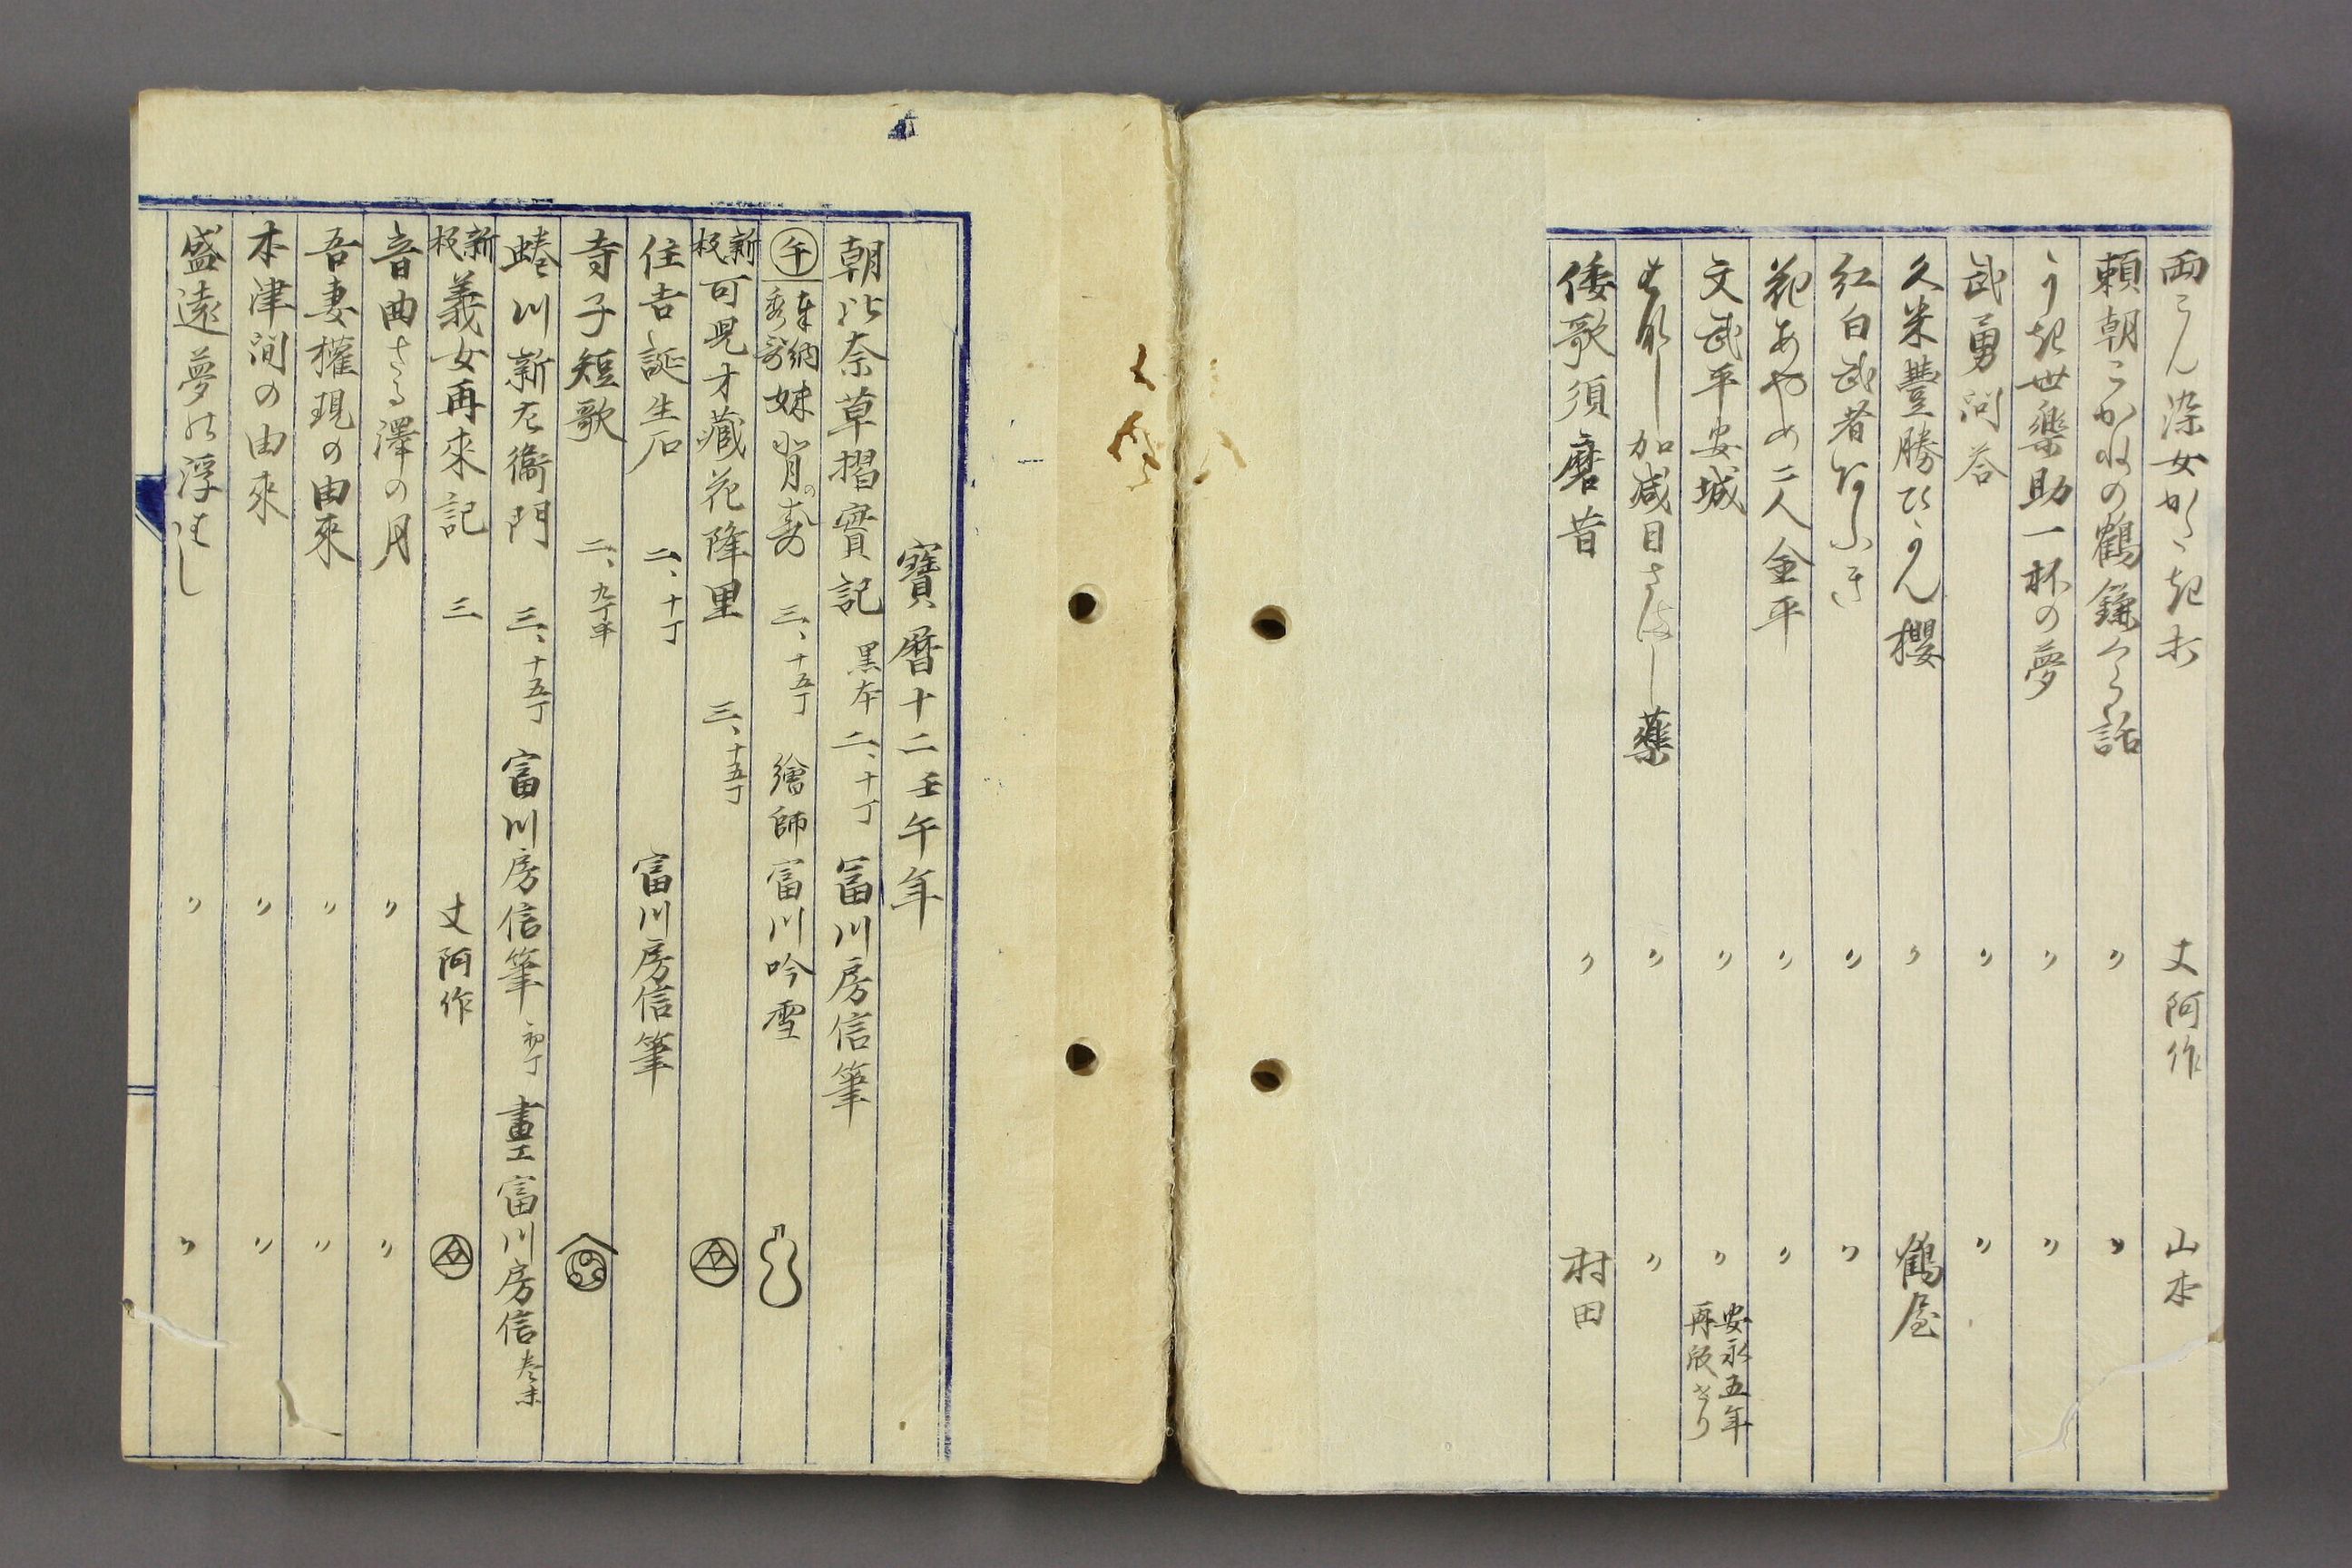 両こん染女かたき討 丈阿作 山本
頼朝こがねの鶴鎌くら話 〃 〃
うき世楽助一杯の夢 〃 〃
武勇問荅 〃 〃
久米豐勝ひがん櫻 〃 鶴屋
紅白武者 〃 〃
花あやめ二人金平 〃 〃
文武平安城 〃 〃 安永五年
再版せり
加减目さまし藥 〃 〃
倭歌須磨昔 〃 村田
寳暦十二壬午年
朝比奈草摺實記 黒本 二、十丁 冨川房信筆
午 奉納
妹背の 三、十五丁 繪師富川吟雪
新板 可児才藏花降里 三、十五丁
住吉誕生石 二、十丁 富川房信筆
寺子短歌 二、九丁半
蜷川新左衞門 三、十五丁 富川房信筆 初丁 畫工富川房信 巻末
新板 義女再來記 三 丈阿作
音曲さる澤の月 〃 〃
吾妻權現の由來 〃 〃
木津渕の由來 〃 〃
盛遠夢の浮はし 〃 〃